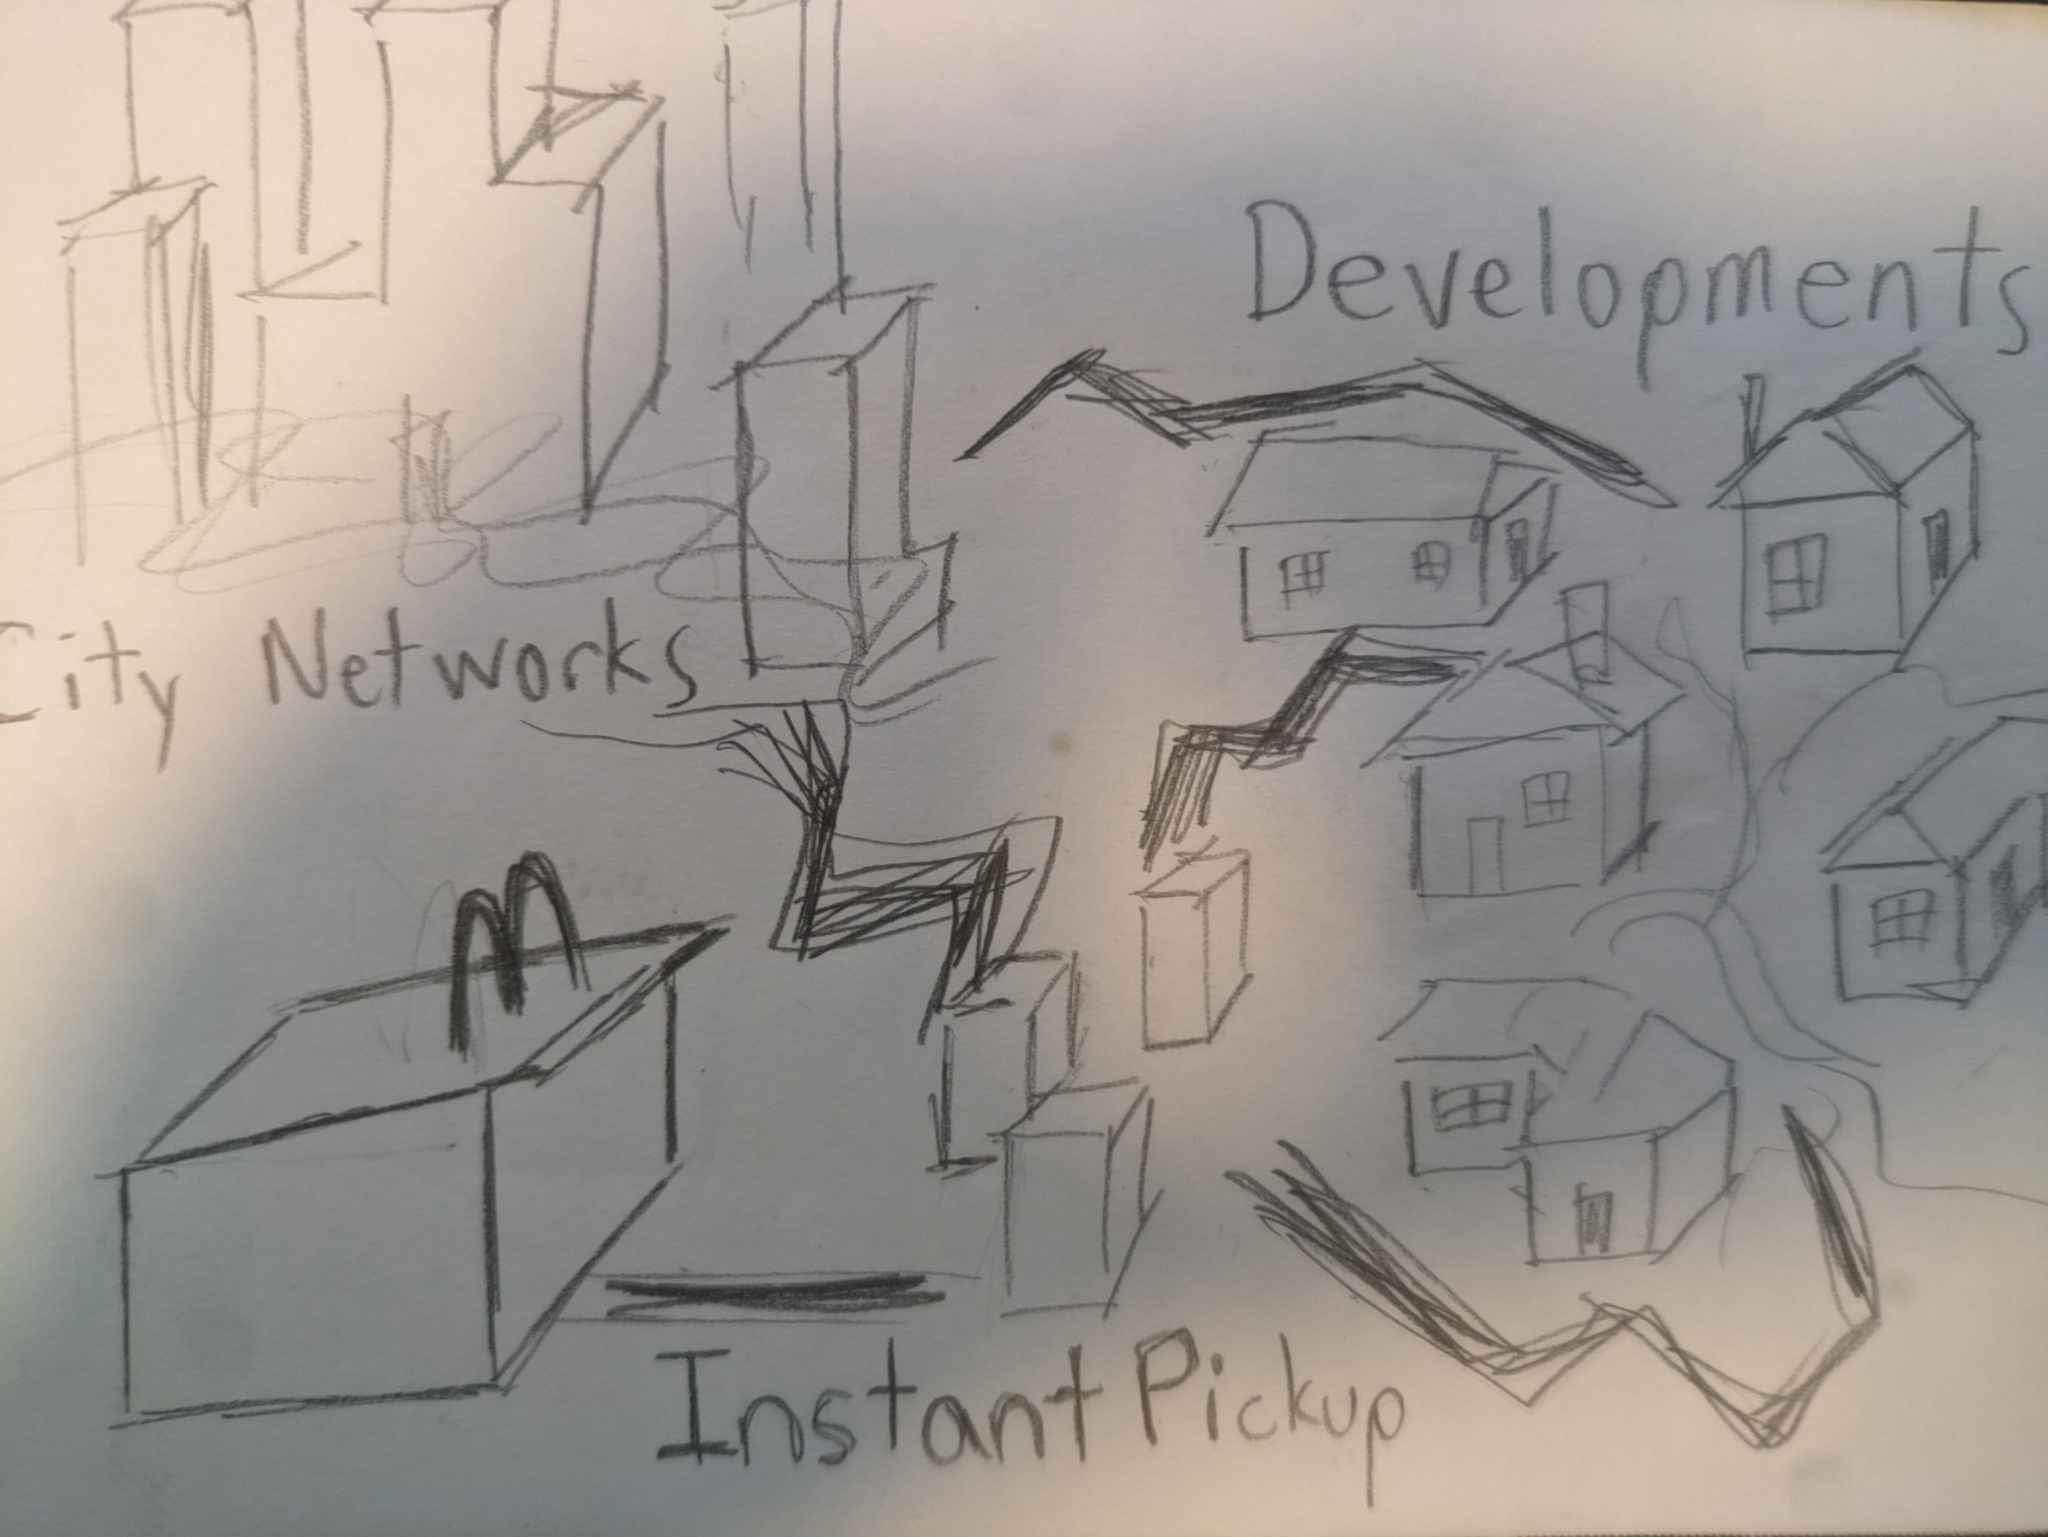 Developments
City Networks
M
Instant Pickup